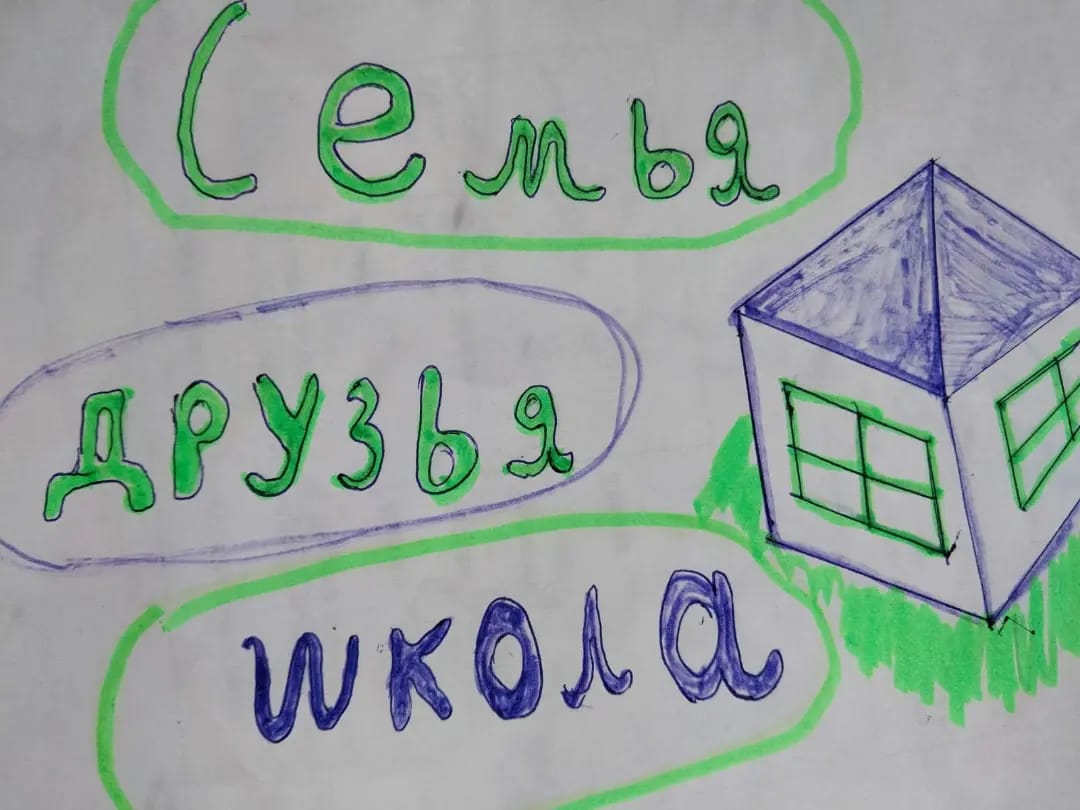 Семья
друзья
школа